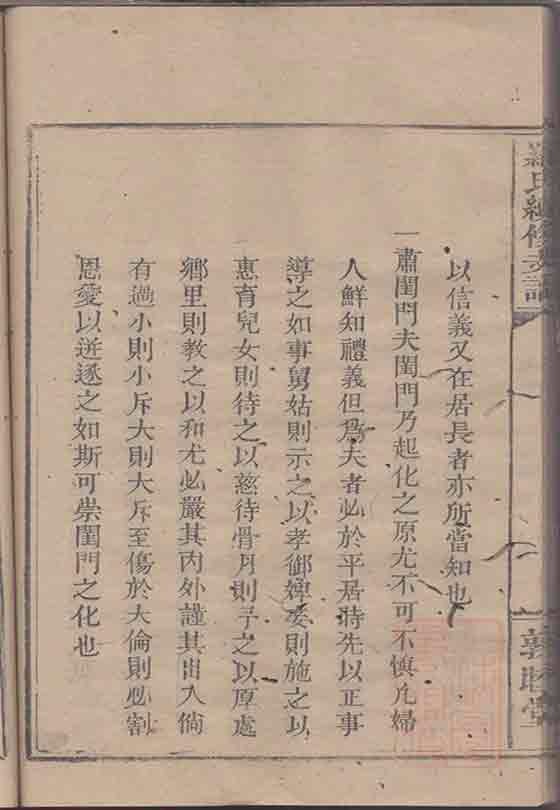 氏續修支譜
敦睦堂
以信義又在居長者亦所當知也
一肅閨門夫閨門乃起化之原尤不可不慎凡婦
人鮮知禮義但爲夫者必於平居時先以正事
導之如事舅姑則示之以孝御婢妾則施之以
惠育兒女則待之以慈待骨月則予之以厚處
鄉里則教之以和尤必嚴其內外謹其出入倘
有過小則小斥大則大斥至傷於大倫則必割
恩愛以迸逐之如斯可崇閨門之化也